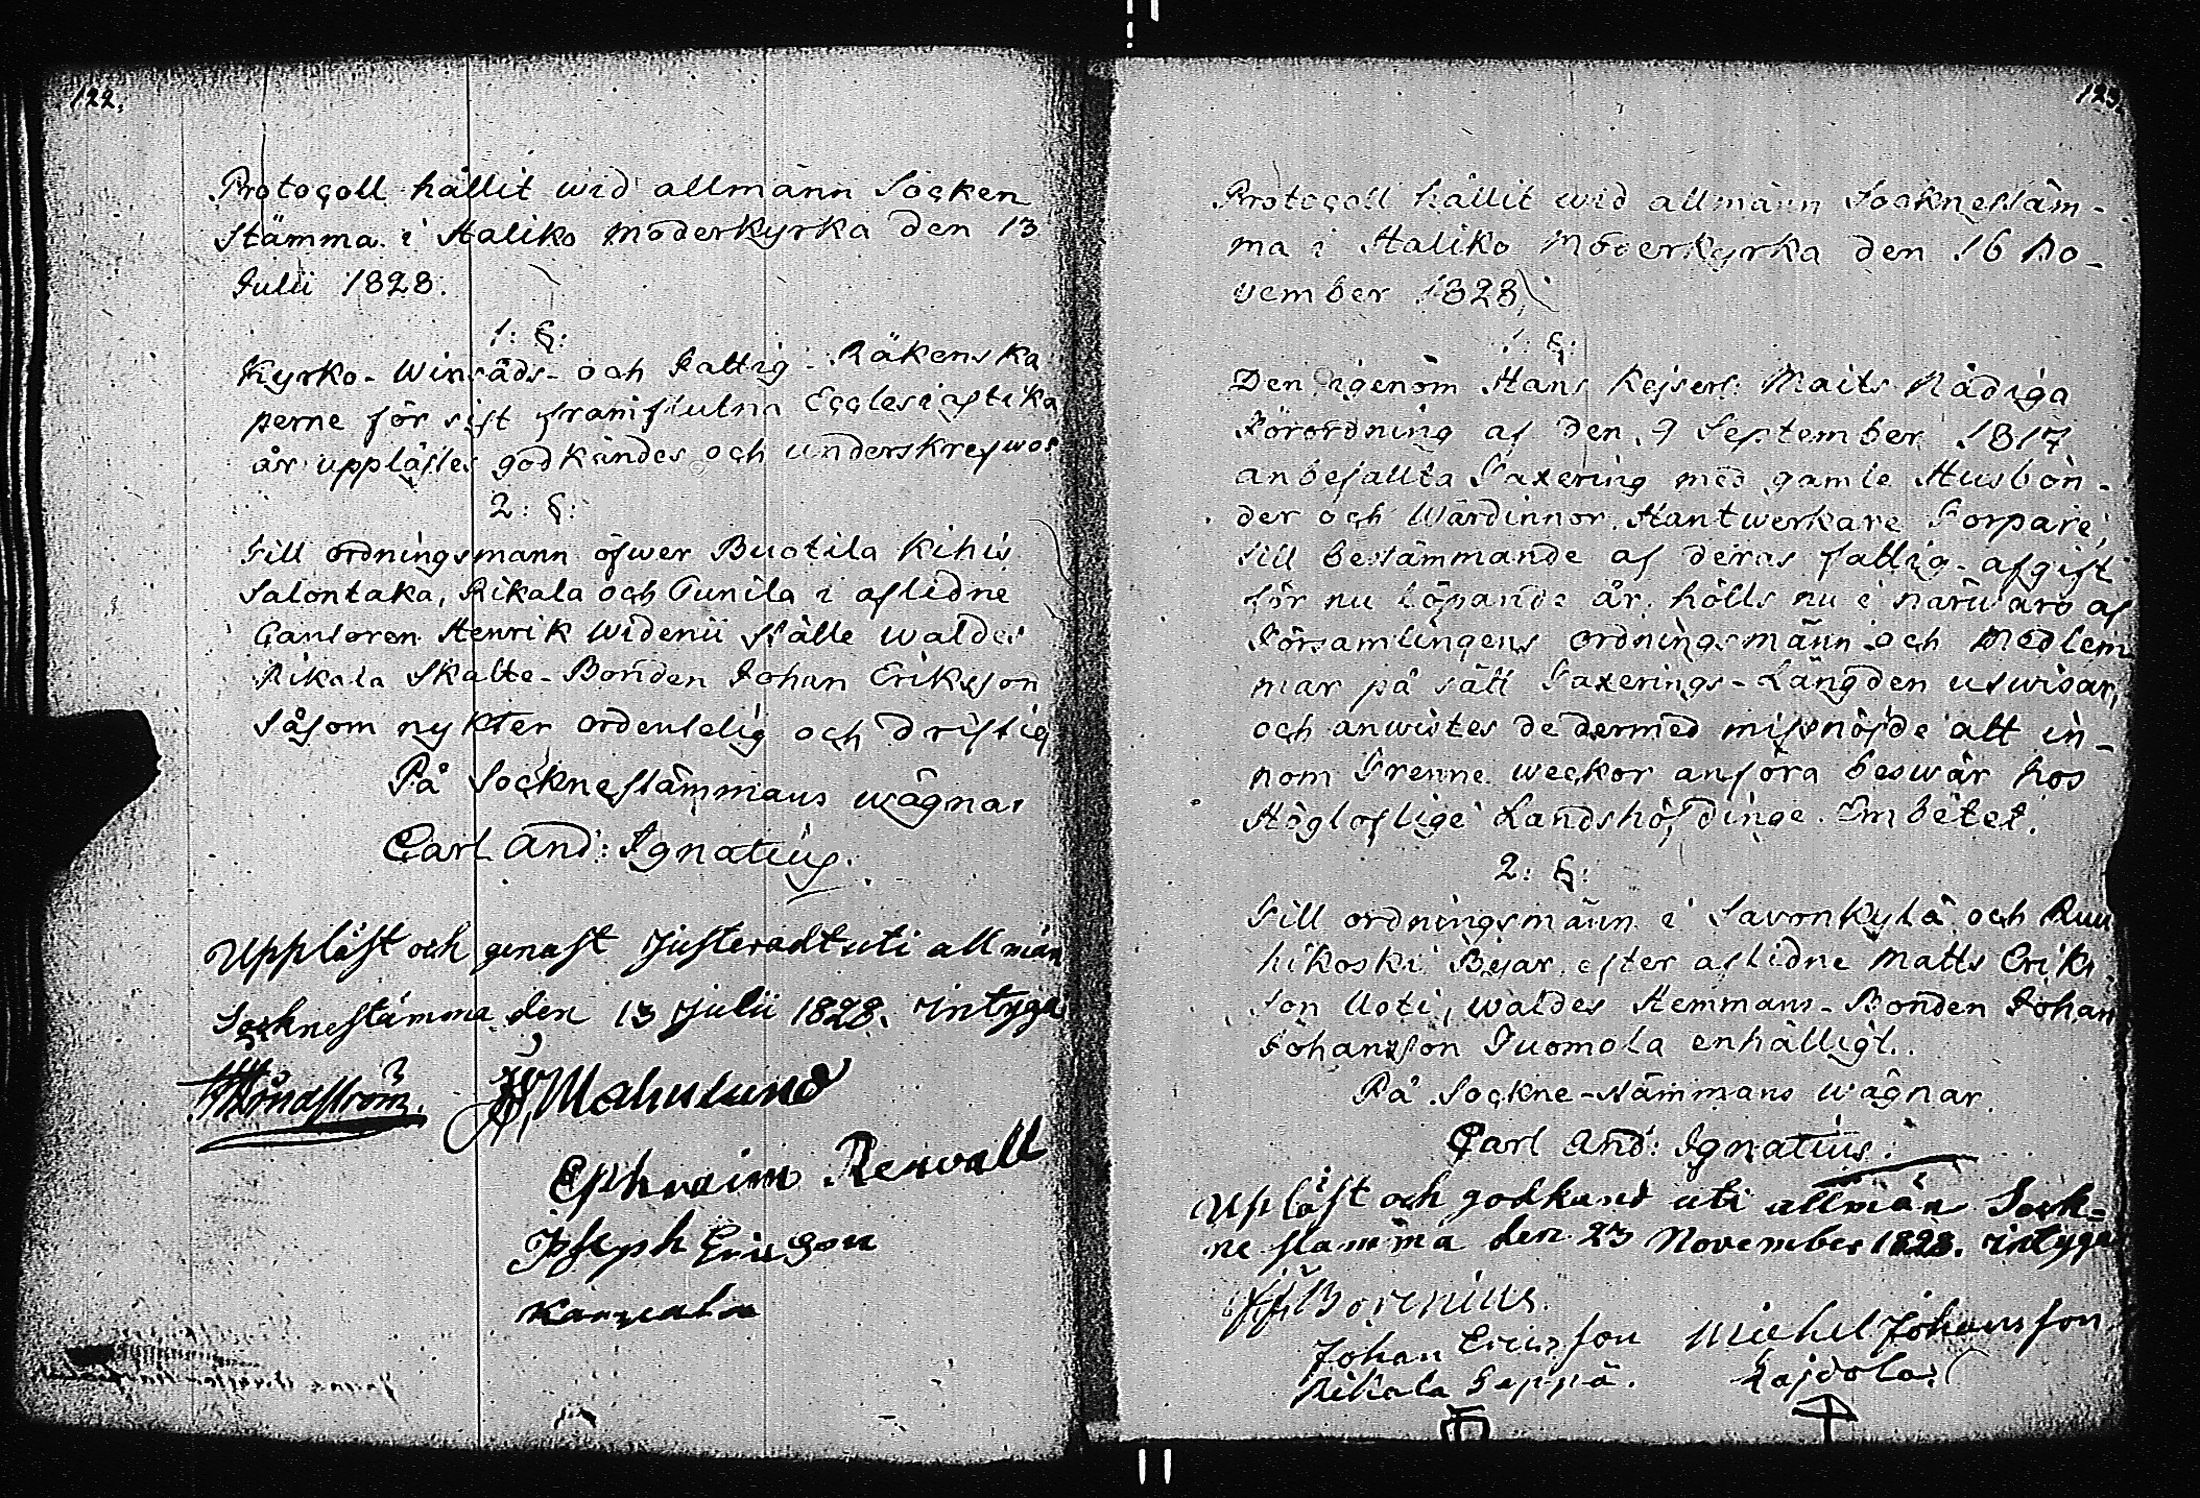 122.
Protocoll hållit wid allmänn Socken
Stämma i Haliko Moderkyrka den 13
Julii 1828.
1: §:
Kyrko- Winsäds- och Fattig- Räkenska
perne för sist framflutna Ecclesiastika
år upplästes godkändes och underskrefwos
2: §:
Till ordningsmann öfwer Buotila Kihis
Salontaka, Rikala och Punila i aflidne
Cantoren Henrik Widenii ställe waldes
Rikala Skatte-Bonden Johan Eriksson
såsom nykter ordentelig och driftig
På Socknestämmans wägnar
Carl And: Ignatius.
Uppläst och genast Justeradt uti allmän
Socknestämma den 13 Julii 1828. intyga
Malmlund
Ephraim Renvall
Joseph Ericson
123.
Protocoll hållit wid allmänn Socknestäm-
ma i Haliko Moderkyrka den 16 No-
vember 1828.
1: §:
Den igenom Hans Kejserl: Maits Nådiga
Förordning af den 9 September 1817
anbefallta Taxering med gamle Husbön-
der och Wärdinnor, Hantwerkare Torpare,
till bestämmande af deras fattig-afgift
för nu löpande år, hölls nu i närwaro af
Församlingens ordningsmänn och Medlem
mar på sätt Taxerings-Längden utwisar,
och anwistes de dermed missnöjde att in-
nom Trenne weckor anföra beswär hos
Höglofliga Landshöfdinge-Embetet.
2: §:
Till ordningsmänn i Savonkylä och Ruu
hikoski Byar efter aflidne Matts Eriks
son Uoti, waldes Hemmans-Bonden Johan
Johansson Tuomola enhälligt.
På Sockne-stämmans wägnar.
Carl And: Ignatius.
Upläst och godkänd uti allmän Sock-
ne stämma den 23 November 1828. intyga
Borenius.
Johan Ericsson Michel Johansson
Rikala Seppä. Kajdola.